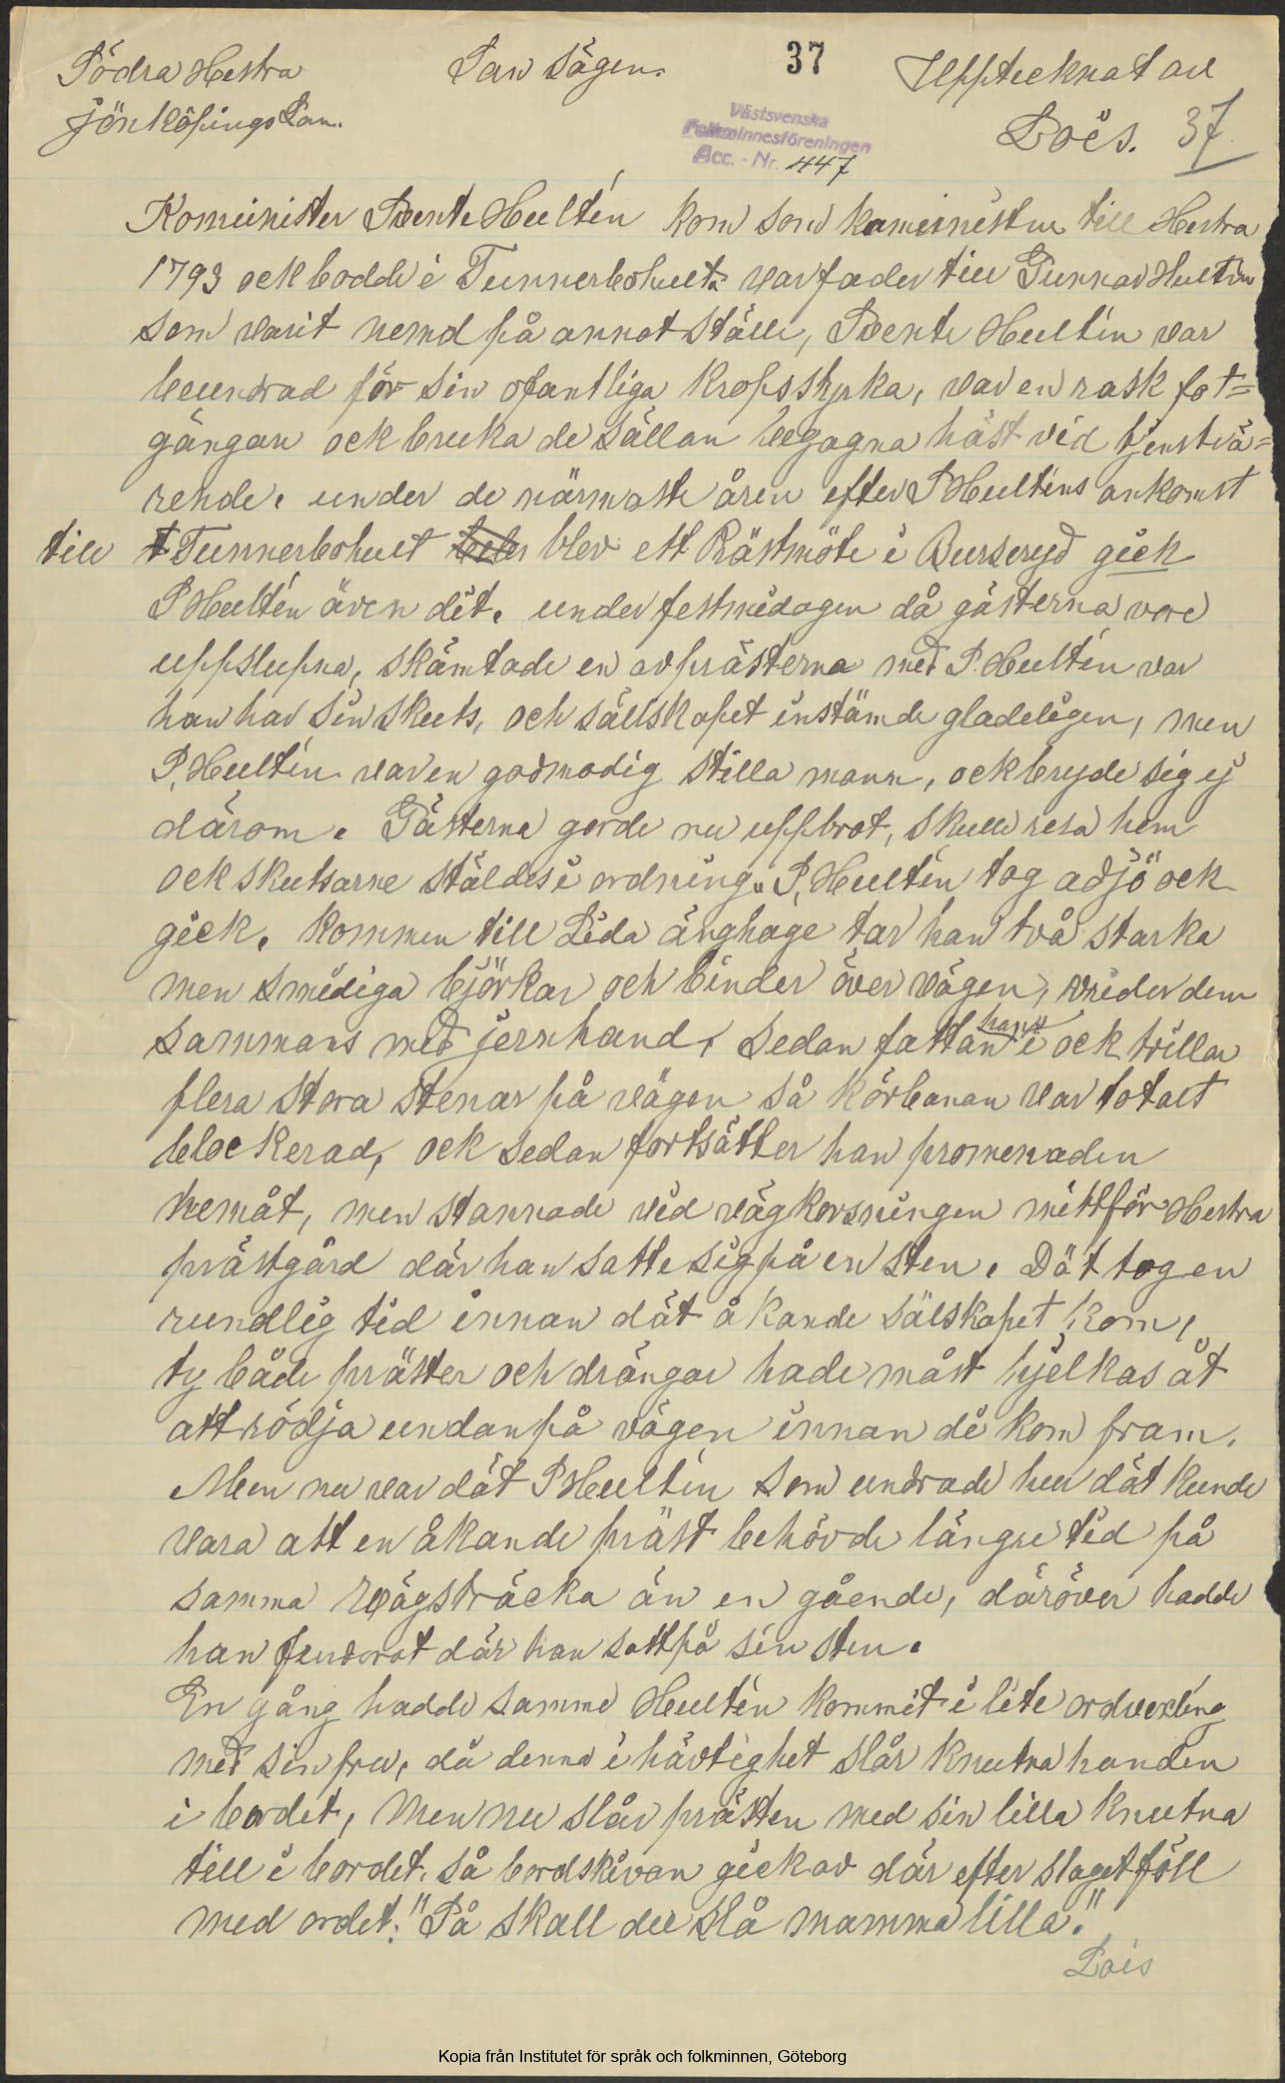 Södra Hestra San Sägen. 37 Upptecknat av
Jönköpings Län. Loès. 37
Västsvenska
Folkminnesföreningen
Acc. - Nr. 447
Komminister Bente Hultén kom som kominister till Hestra
1793 ock bodde i Tunnerbohult. var fader till Gunnar Hultén
som varit nemd på annot ställe, Bente Hultén var
beundrad för sin ofantliga kropsstyrka, var en rask fot=
gängare ock bruka de sällan begagna häst vid tjenstvä=
rende. under de närmaste åren efter P Hulténs ankomst
till Tunnerbohult blev ett Rästmöte i Burseryd gick
P Hultén även dit. under festmidagen då gästerna vore
uppslupna, skämtade en av prästerna med P. Hultén var
han har sin skuts, och sällskapet instämde gladeligen, men
P, Hultén var en godmodig stilla mann, ock bryde sig ej
därom. Gästerna gorde nu uppbrot, skulle resa hem
ock skutsarne stäldes i ordning. P, Hultén tog adjö ock
gick. kommen till Lida änghage tar han två starka
men smidiga björkar och binder över vägen, vrider dem
sammans med jernhand, sedan fattan han i ock trillar
flera stora stenar på vägen så körbanan var totalt
blockerad, ock sedan fortsätter han promenaden
hemåt, men stannade vid vägkorsningen mittför Hestra
prästgård där han satte sig på en sten. Dät tog en
rundlig tid innan dät åkande sälskapet kom,
ty både präster och drängar hade måst hjelkas åt
att rödja undan på vägen innan de kom fram.
Men nu var dät P Hultén som undrade hur dät kunde
vara att en åkande präst behövde längre tid på
samma vägsträcka än en gående, däröver hadde
han fundorat där han satt på sin sten.
En gång hadde samme Hultén kommit i lite ordvexling
med sin fru, då denna i hävtighet slår knutna handen
i bordet, Men nu slår prästen med sin lilla knutna
till i bordet. så bordskivan gick av där efter slaget föll
med ordet: "Så skall du slå mamma lilla."
Lois
Kopia från Institutet för språk och folkminnen, Göteborg